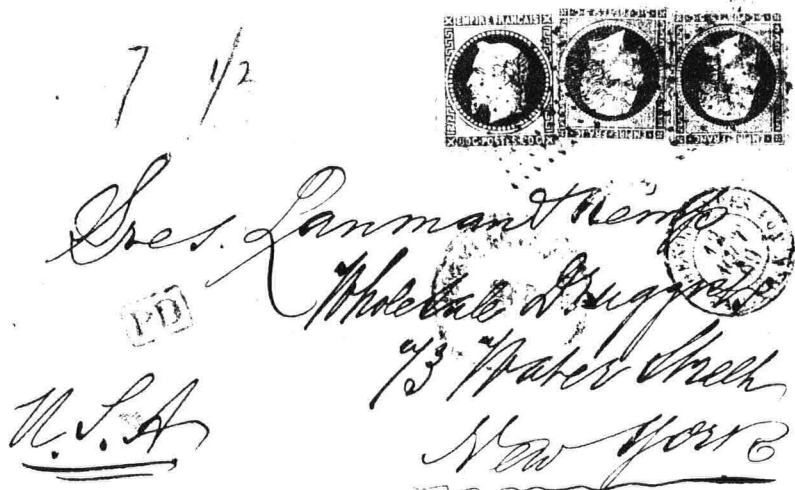 7 1/2
EMPIRE FRANCAIS
Sres. Lanman & Kemp
Wholesale Druggists
PD
73 Water Street
U.S.A
New York